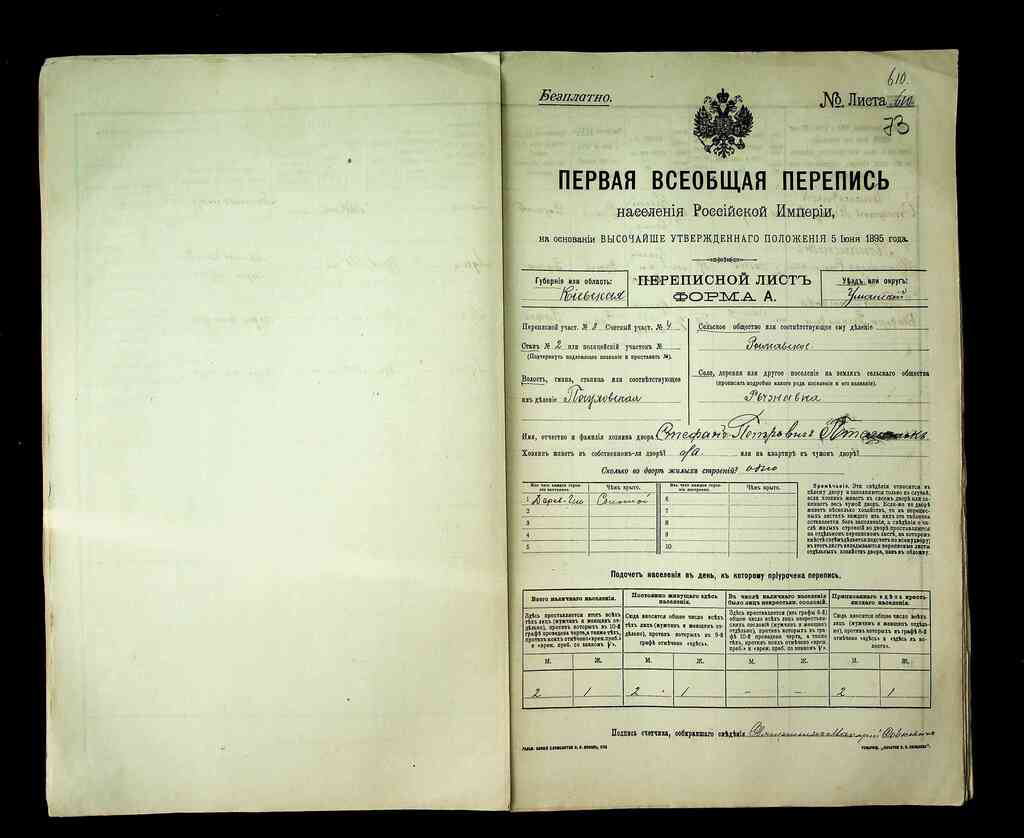 610.
Безплатно.
№ Листа 610
73
ПЕРВАЯ ВСЕОБЩАЯ ПЕРЕПИСЬ
населенія Россійской Имперіи,
на основаніи ВЫСОЧАЙШЕ УТВЕРЖДЕННАГО ПОЛОЖЕНІЯ 5 Іюня 1895 года.
Губернія или область:
Кіевская
ПЕРЕПИСНОЙ ЛИСТЪ
ФОРМА А.
Уѣздъ или округъ:
Уманскій
Переписной участ. № 8 Счетный участ. № 4
Станъ № 2 или полицейскій участокъ №
(Подчеркнуть подлежащее названіе и проставить №).
Волость, гмина, станица или соотвѣтствующее
имъ дѣленіе
Сельское общество или соотвѣтствующее ему дѣленіе
Село, деревня или другое поселеніе на земляхъ сельскаго общества
(прописать подробно какого рода поселеніе и его названіе).
Рыжавка
Имя, отчество и фамилія хозяина двора Стефанъ Петровичъ
Хозяинъ живетъ въ собственном-ли дворѣ? да или на квартирѣ въ чужомъ дворѣ?
Сколько во дворѣ жилыхъ строеній? одно
Изъ чего каждое строеніе построено. Чѣмъ крыто. Изъ чего каждое строеніе построено. Чѣмъ крыто.
1 Соломой 6
2 7
3 8
4 9
5 10
Примѣчаніе. Эти свѣдѣнія относятся къ
цѣлому двору и заполняются только въ случаѣ,
если хозяинъ живетъ въ своемъ дворѣ или занимаетъ
весь чужой дворъ. Если-же во дворѣ
Подсчетъ населенія въ день, къ которому пріурочена перепись.
Всего наличнаго населенія.
Здѣсь проставляется итогъ всѣхъ
тѣхъ лицъ (мужчинъ и женщинъ отдѣльно),
противъ которыхъ въ 10-й
графѣ проведена черта, а также тѣхъ,
противъ коихъ отмѣчено «врем. преб.»
и «врем. преб. со знакомъ V».
Постоянно живущаго здѣсь
населенія.
Сюда вносится общее число всѣхъ
тѣхъ лицъ (мужчинъ и женщинъ отдѣльно),
противъ которыхъ въ 9-й
графѣ отмѣчено «здѣсь».
Въ числѣ наличнаго населенія
было лицъ некрестьян. сословій.
Здѣсь проставляется (изъ графы 4-й)
общее число всѣхъ лицъ некрестьянскихъ
сословій (мужчинъ и женщинъ
отдѣльно), противъ которыхъ въ
графѣ 10-й проведена черта, а также
противъ коихъ отмѣчено «врем.
преб.» и «врем. преб. со знакомъ V».
Приписаннаго здѣсь крестьянскаго
населенія.
Сюда вносится общее число всѣхъ
лицъ (мужчинъ и женщинъ отдѣльно),
противъ которыхъ въ графѣ 8-й
отмѣчено «здѣсь» и «здѣсь въ волости».
М. Ж. М. Ж. М. Ж. М. Ж.
2 1 2 1 — — 2 1
Подпись счетчика, собиравшаго свѣдѣнія Макарій